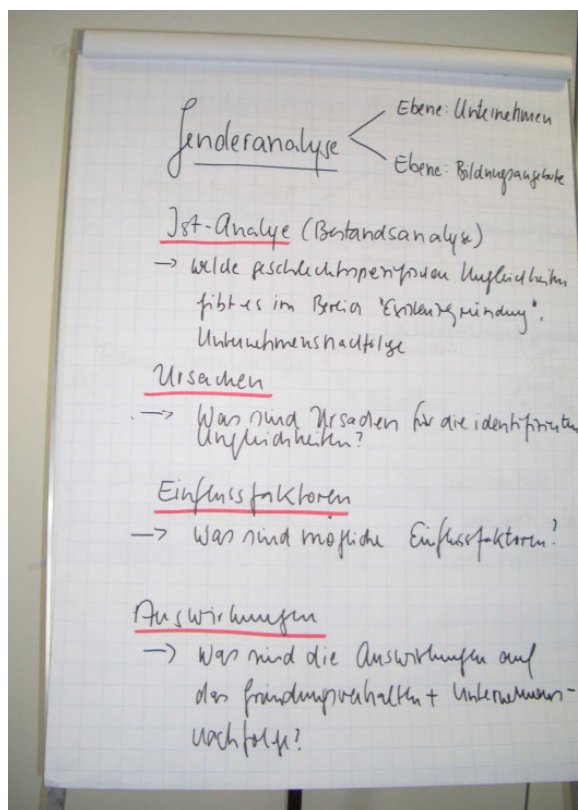 Genderanalyse
Ebene: Unternehmen
Ebene: Bildungsangebote
Ist-Analyse (Bestandsanalyse)
→ welche geschlechtsspezifischen Ungleichheiten
gibt es im Bereich "Existenzgründung".
Unternehmensnachfolge
Ursachen
→ Was sind Ursachen für die identifizierten
Ungleichheiten?
Einflussfaktoren
→ Was sind mögliche Einflussfaktoren?
Auswirkungen
→ Was sind die Auswirkungen auf
das Gründungsverhalten + Unternehmens-
nachfolge?